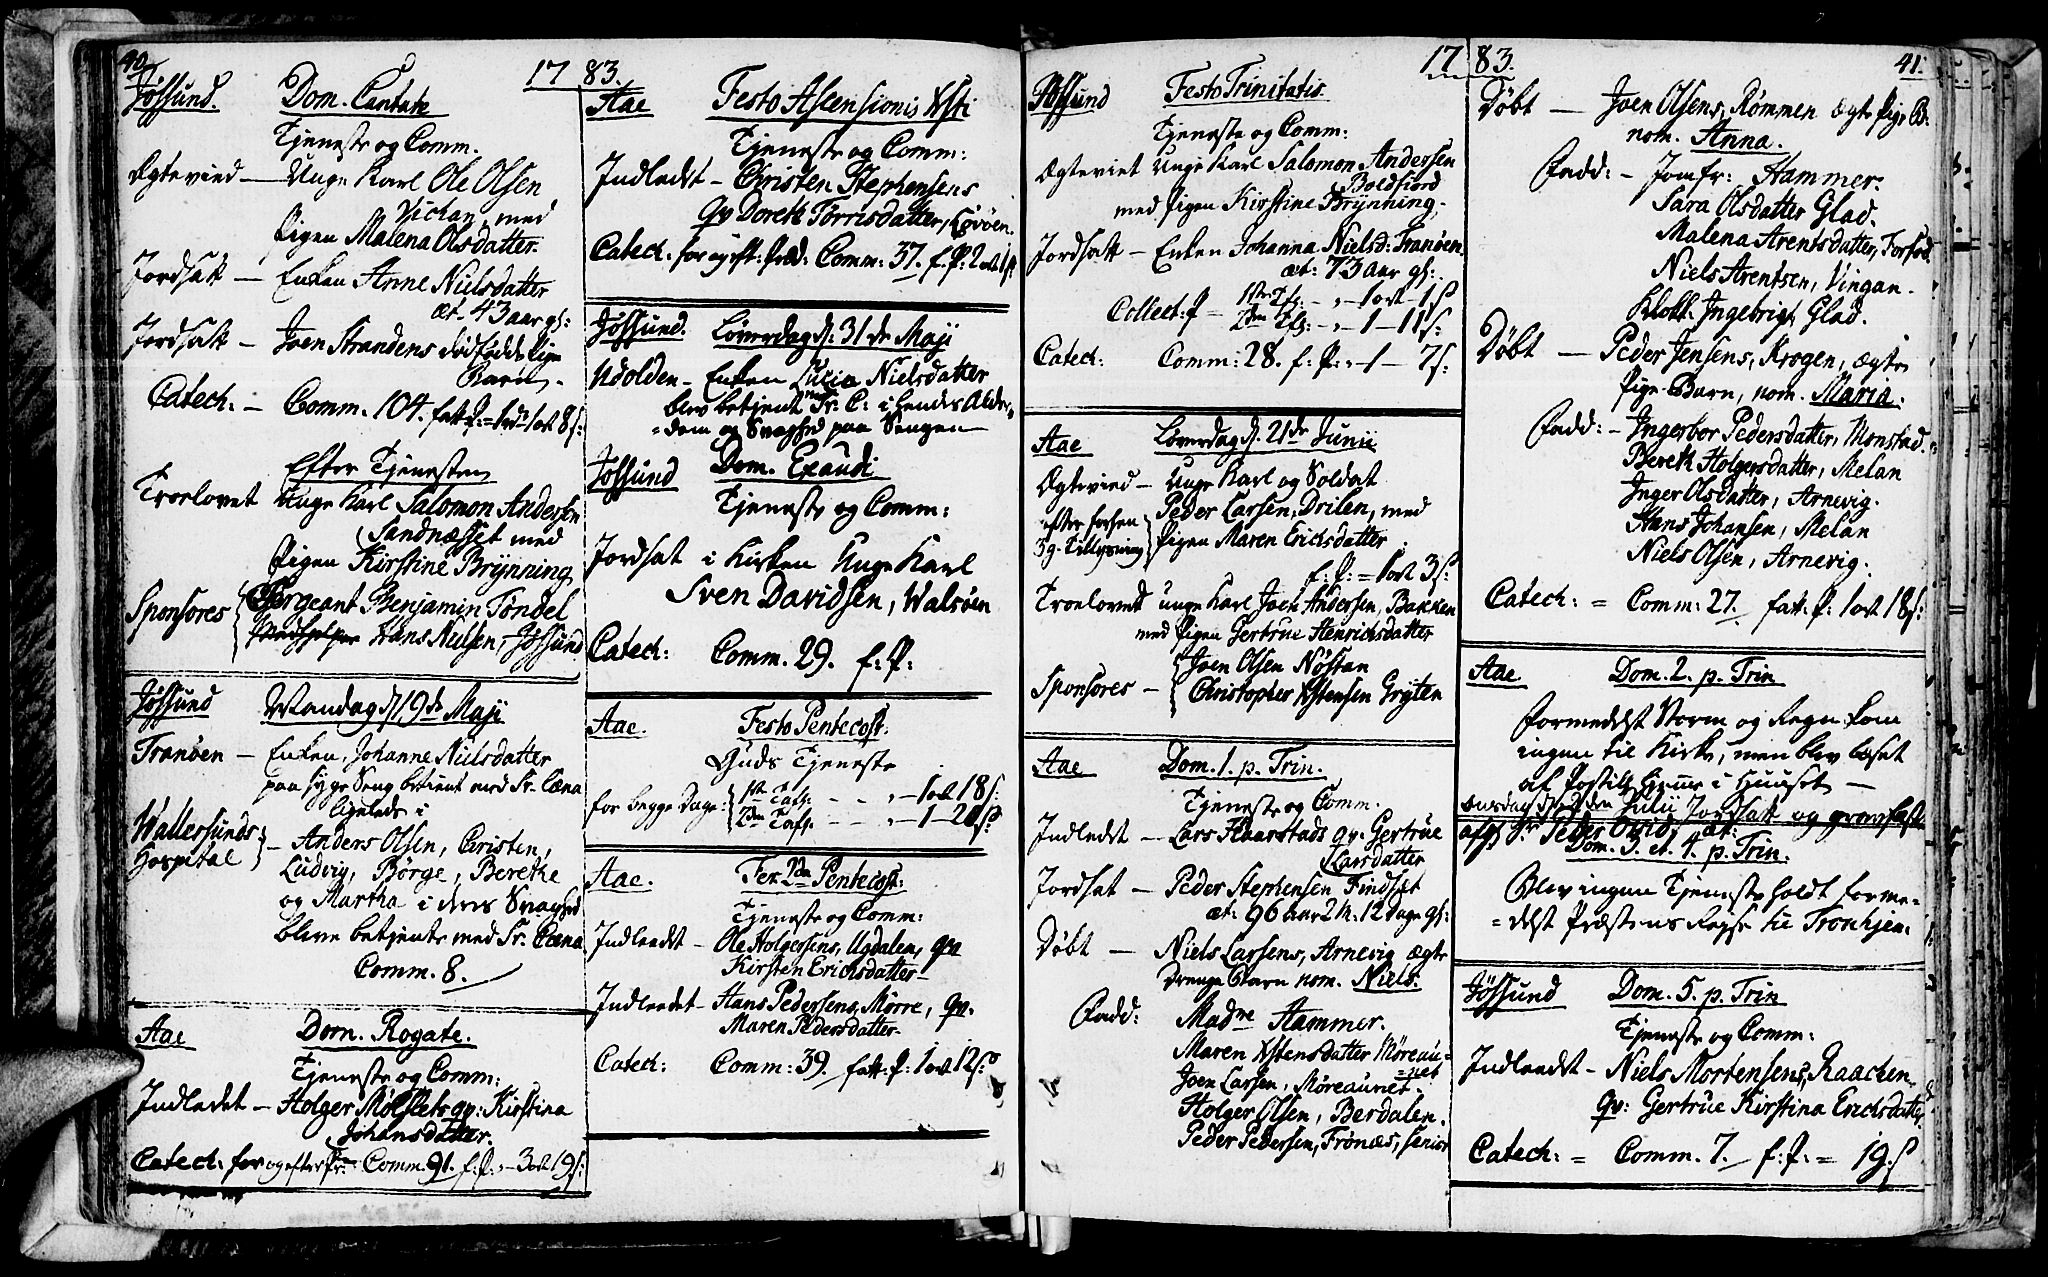 40. 1783.
Jøssund. Dom. Cantate
Tjeneste og Comm.
Ægtevied — Unge Karl Ole Olsen
Vichan, med
Pigen Malena Olsdatter.
Jordsatt — Enken Anne Nielsdatter
æt. 43 aar gl:
Jordsatt — Joen Strandens dødfødde Pige
Barn.
Catech: — Comm. 104. fatt. P:
Efter Tjenesten
Troelovet Unge Karl Salomon Andersen
Sandnæsset med
Pigen Kirstine Brÿnning
Sponsores Sergeant Benjamin Tøndel
Medhjelper Hans Nielsen, Jøssund
Jøssund Mandag d. 19de Maji
Tranøen — Enken, Johanne Nielsdatter
paa syge Seng betient med Sr. Cæna
ligeledes i
Wallersunds — Anders Olsen, Cristen,
Hospital Ludvig, Børge, Berethe
og Martha i deres Svaghed
bleve betjente med Sr. Cæna
Comm. 8.
Aae Dom. Rogate.
Tjeneste og Comm:
Indledet — Holger Mølslets qv: Kirstina
Johansdatter.
Catech: for og efter Pr: Comm. 91. f: P: — 3 ort 19 s:
Aae Festo Ascensionis Xsti
Tjeneste og Comm:
Indledt — Christen Stephensens
qv Doreth Tørrisdatter,
Catech: for og eft: Præd: Comm: 37. f. P: 2 ort 1 s
Jøssund. Løverdag d. 31de Maji
Udolden — Enken Lucia Nielsdatter
blev betjent med Sr. C: i hendes Alder-
=dom og Svaghed paa Sengen
Jøssund Dom. Exaudi
Tjeneste og Comm:
Jordsat i Kirken Unge Karl
Sven Davidsen, Walsøen
Catech: Comm. 29. f: P:
Aae. Festo Pentecost:
Guds Tjeneste
for begge Dage: 1ste Tafl. — 1 ort 18 s:
2den Tafl. — 1 — 20 s:
Aae. Fer. 2da Pentecost:
Tjeneste og Comm:
Indleedt — Ole Holgersens, Ugdalen, qv
Kirsten Erichsdatter
Indleedet — Hans Pedersens, Mørre, qv.
Maren Pedersdatter.
Catech: Comm: 39. fatt: P: 1 ort 12 s:
1783. 41.
Jøssund Festo Trinitatis
Tjeneste og Comm:
Ægteviet Unge Karl Salomon Andersen
Boldfiord
med Pigen Kirstine Brÿnning,
Jordsatt — Enken Johanna Nielsd: Tranøen
æt: 73 aar gl:
Collect: P — 1ste Tfl: — 1 ort — 1 s
2den Tfl: — 1 — 11 s:
Catech: Comm: 28. f: P: — 1 — 7 s:
Aae Løverdag d. 21de Junii
Ægtevied — Unge Karl og Soldat
efter forhen Peder Larsen, Drilen, med
3 g. Tillysning Pigen Maren Erichsdatter
f: P: = 1 ort 3 s:
Troelovet unge Karl Joen Andersen, Bakken
med Pigen Gertrue Henrichsdatter
Sponsores — Joen Olsen Nøstan
Christopher Xstensen Grÿten
Aae Dom. 1. p. Trin.
Tjeneste og Comm.
Indledt — Lars Haarstads qv: Gertrue
Larsdatter
Jordsat — Peder Stephensen Findset
æt: 96 aar 2 M: 12 dage gl:
Døbt — Niels Larsens, Arnevig ægte
Drenge Barn nom. Niels.
Fadd: Madme Hammer.
Maren Xstensdatter Møreau-
=net
Joen Larsen, Møreaunet.
Holger Olsen, Berdalen.
Peder Pedersen, Frønæs, senior
Døbt — Joen Olsens, Rømmen ægte Pige B:
nom. Anna.
Fadd: — Jomfr: Hammer.
Sara Olsdatter Glad.
Malena Arentsdatter,
Niels Arentsen, Vingan.
Klokk. Ingebrigt Glad.
Døbt — Peder Jensens, Krogen, ægte
Pige Barn, nom. Maria.
Fadd: — Ingerbor Pedersdatter, Monstad.
Bereth Holgersdatter, Melan
Inger Olsdatter, Arnevig.
Hans Johansen, Melan
Niels Olsen, Arnevig.
Catech: = Comm: 27. fatt: P: 1 ort 18 s:
Aae Dom. 2. p. Trin
Formedelst Storm og Regn kom
ingen til Kirke, men blev læset
af Postill hjemme i Huuset —
Onsdag den 2den Julii Jordsatt og gravfæst
afg: Sr Peder Ovid, æt:
Dom. 3. et. 4. p. Trin.
Blev ingen Tjeneste holdt forme-
=delst Præstens Reise til Tronhjem.
Jøssund Dom. 5. p. Trin
Tjeneste og Comm:
Indleedt — Niels Mortensens, Raachen
qv: Gertrue Kirstina Erichsdatter
Catech: = Comm. 7. f: P: = 19: s